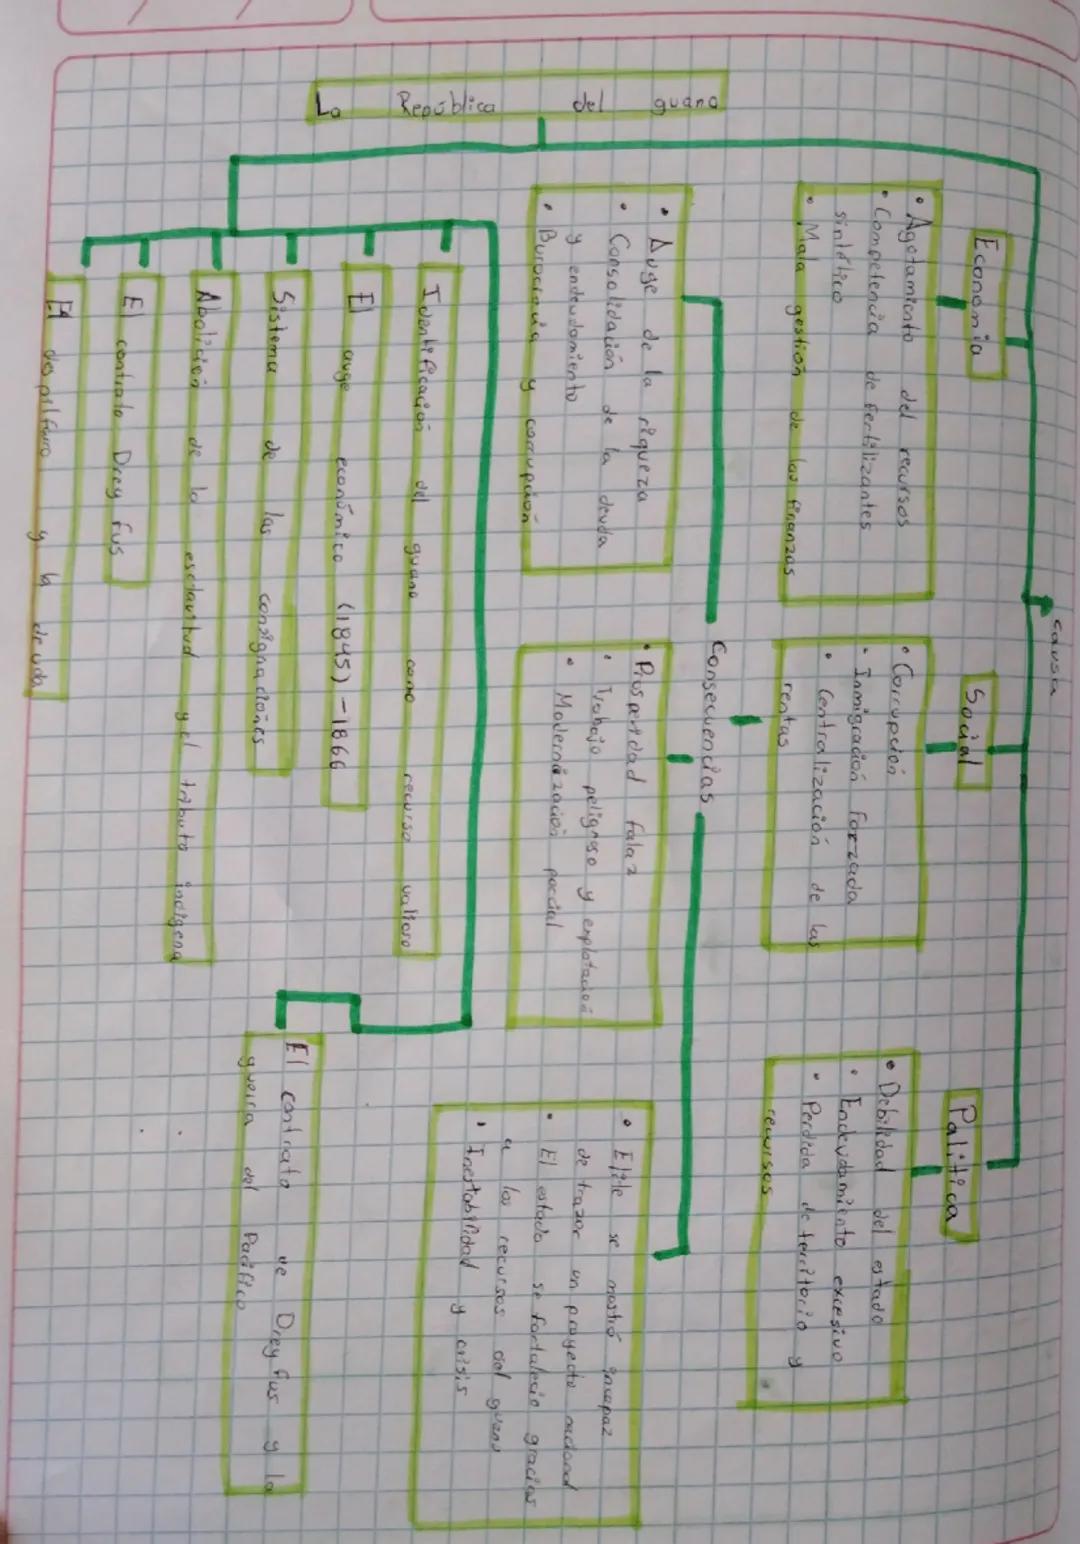 causa
Economia
Social
Palitica
• Agotamiento del recursos
• Competencia de fertilizantes
sintético
• Mala gestión de las finanzas
• Corrupción
• Inmigración forzada
• Centralización de las
rentas
• Debilidad del estado
• Endeudamiento excesivo
• Perdida de territorio y
recursos
La República del guano
Consecuencias
• Auge de la riqueza
• Consolidación de la deuda
y endeudamiento
• Burocracia y corrupción
• Prosperidad falaz
• Trabajo peligroso y explotación
• Modernización parcial
• Elite se mostró incapaz
de trazar un proyecto nacional
• El estado se fortalecio gracias
a los recursos del guano
• Inestabilidad y crisis
Identificación del guano como recurso valioso
El auge económico (1845)-1866
Sistema de las consignaciones
Abolición de la esclavitud y el tributo indigena
El contrato Dreyfus
El despilfarro y la deuda
El contrato de Dreyfus y la
guerra del Pacifico